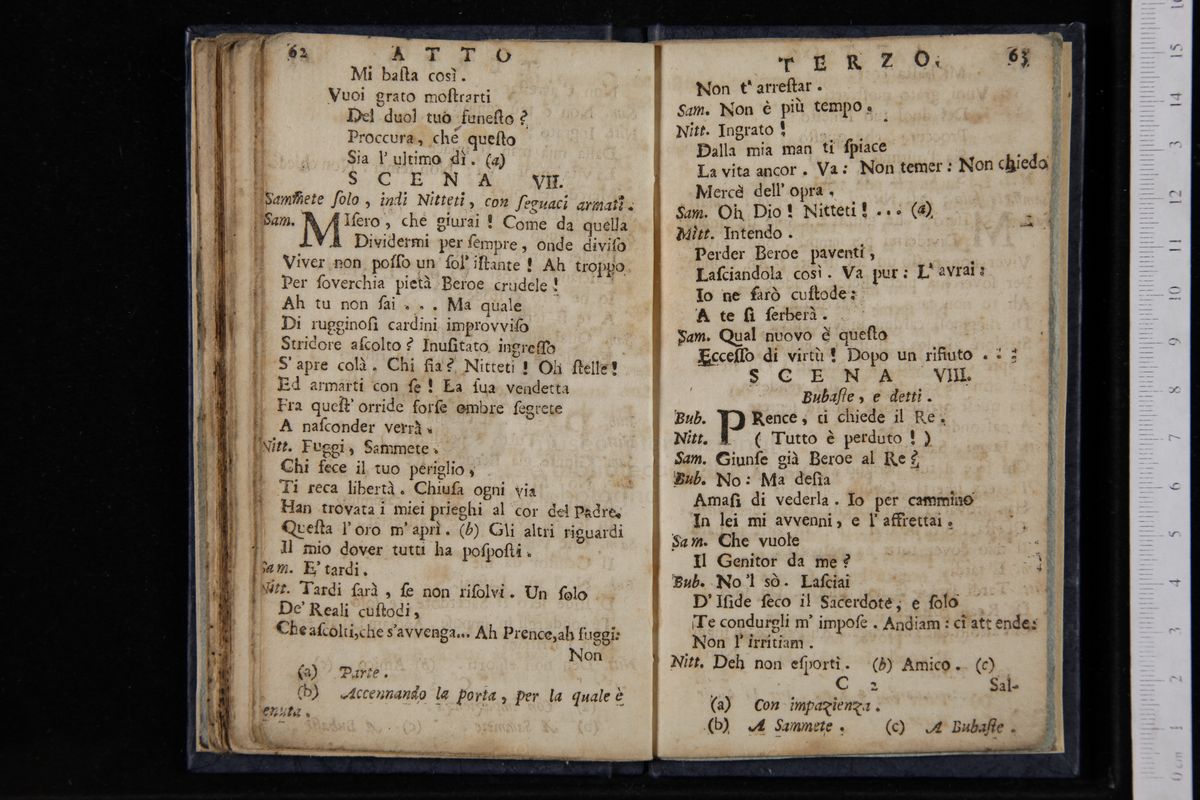 62 ATTO
Mi baſta così.
Vuoi grato moſtrarti
Del duol tuo funeſto?
Proccura, che queſto
Sia l'ultimo dì. (a)
SCENA VII.
Sammete ſolo, indi Nitteti, con ſeguaci armati.
Sam. Miſero, che giurai! Come da quella
Dividermi per ſempre, onde diviſo
Viver non poſſo un ſol' iſtante! Ah troppo
Per ſoverchia pietà Beroe crudele!
Ah tu non ſai ... Ma quale
Di rugginoſi cardini improvviſo
Stridore aſcolto? Inuſitato ingreſſo
S'apre colà. Chi ſia? Nitteti! Oh ſtelle!
Ed armarti con ſe! La ſua vendetta
Fra queſt' orride forſe ombre ſegrete
A naſconder verrà.
Nitt. Fuggi, Sammete.
Chi fece il tuo periglio,
Ti reca libertà. Chiuſa ogni via
Han trovata i miei prieghi al cor del Padre.
Queſta l'oro m'aprì. (b) Gli altri riguardi
Il mio dover tutti ha poſpoſti.
Sam. E' tardi.
Nitt. Tardi ſarà, ſe non riſolvi. Un ſolo
De' Reali cuſtodi,
Che aſcolti, che s'avvenga... Ah Prence, ah fuggi:
Non
(a) Parte.
(b) Accennando la porta, per la quale è
enuta.
TERZO. 63
Non t'arreſtar.
Sam. Non è più tempo.
Nitt. Ingrato!
Dalla mia man ti ſpiace
La vita ancor. Va: Non temer: Non chiedo
Mercè dell' opra.
Sam. Oh Dio! Nitteti! ... (a)
Nitt. Intendo.
Perder Beroe paventi,
Laſciandola così. Va pur: L'avrai:
Io ne ſarò cuſtode:
A te ſi ſerberà.
Sam. Qual nuovo è queſto
Ecceſſo di virtù! Dopo un rifiuto ...
SCENA VIII.
Bubaſte, e detti.
Bub. PRence, ti chiede il Re.
Nitt. (Tutto è perduto!)
Sam. Giunſe già Beroe al Re?
Bub. No: Ma deſia
Amaſi di vederla. Io per cammino
In lei mi avvenni, e l'affrettai.
Sam. Che vuole
Il Genitor da me?
Bub. No 'l sò. Laſciai
D'Iſide ſeco il Sacerdote, e ſolo
Te condurgli m'impoſe. Andiam: ci attende:
Non l'irritiam.
Nitt. Deh non eſporti. (b) Amico. (c)
C 2 Sal-
(a) Con impazienza.
(b) A Sammete. (c) A Bubaſte.
15
14
13
12
11
10
9
8
7
6
5
4
3
2
1
0 cm